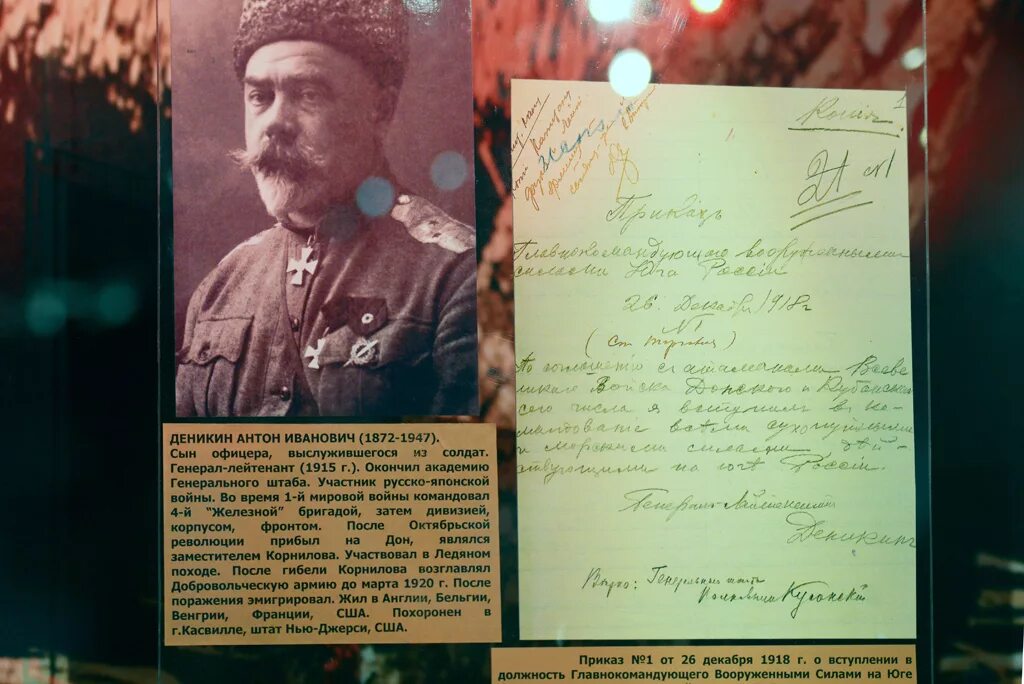 ДЕНИКИН АНТОН ИВАНОВИЧ (1872-1947).
Сын офицера, выслужившегося из солдат.
Генерал-лейтенант (1915 г.). Окончил академию
Генерального штаба. Участник русско-японской
войны. Во время 1-й мировой войны командовал
4-й "Железной" бригадой, затем дивизией,
корпусом, фронтом. После Октябрьской
революции прибыл на Дон, являлся
заместителем Корнилова. Участвовал в Ледяном
походе. После гибели Корнилова возглавлял
Добровольческую армию до марта 1920 г. После
поражения эмигрировал. Жил в Англии, Бельгии,
Венгрии, Франции, США. Похоронен в
г.Касвилле, штат Нью-Джерси, США.
Копия
21 №1
Приказъ
Главнокомандующаго вооруженными
силами Юга Россіи
26 Декабря 1918 г
№1
(ст. )
По соглашению с атаманами Всеве
ликаго Войска Донского и Кубанскаго
сего числа я вступил в ко-
мандование всеми сухопутными
и морскими силами, дей-
ствующими на юге Россіи.
Генерал-Лейтенант
Деникин
Верно: Генеральнаго штаба
Полковник Кусонский
Приказ №1 от 26 декабря 1918 г. о вступлении в
должность Главнокомандующего Вооруженными Силами на Юге